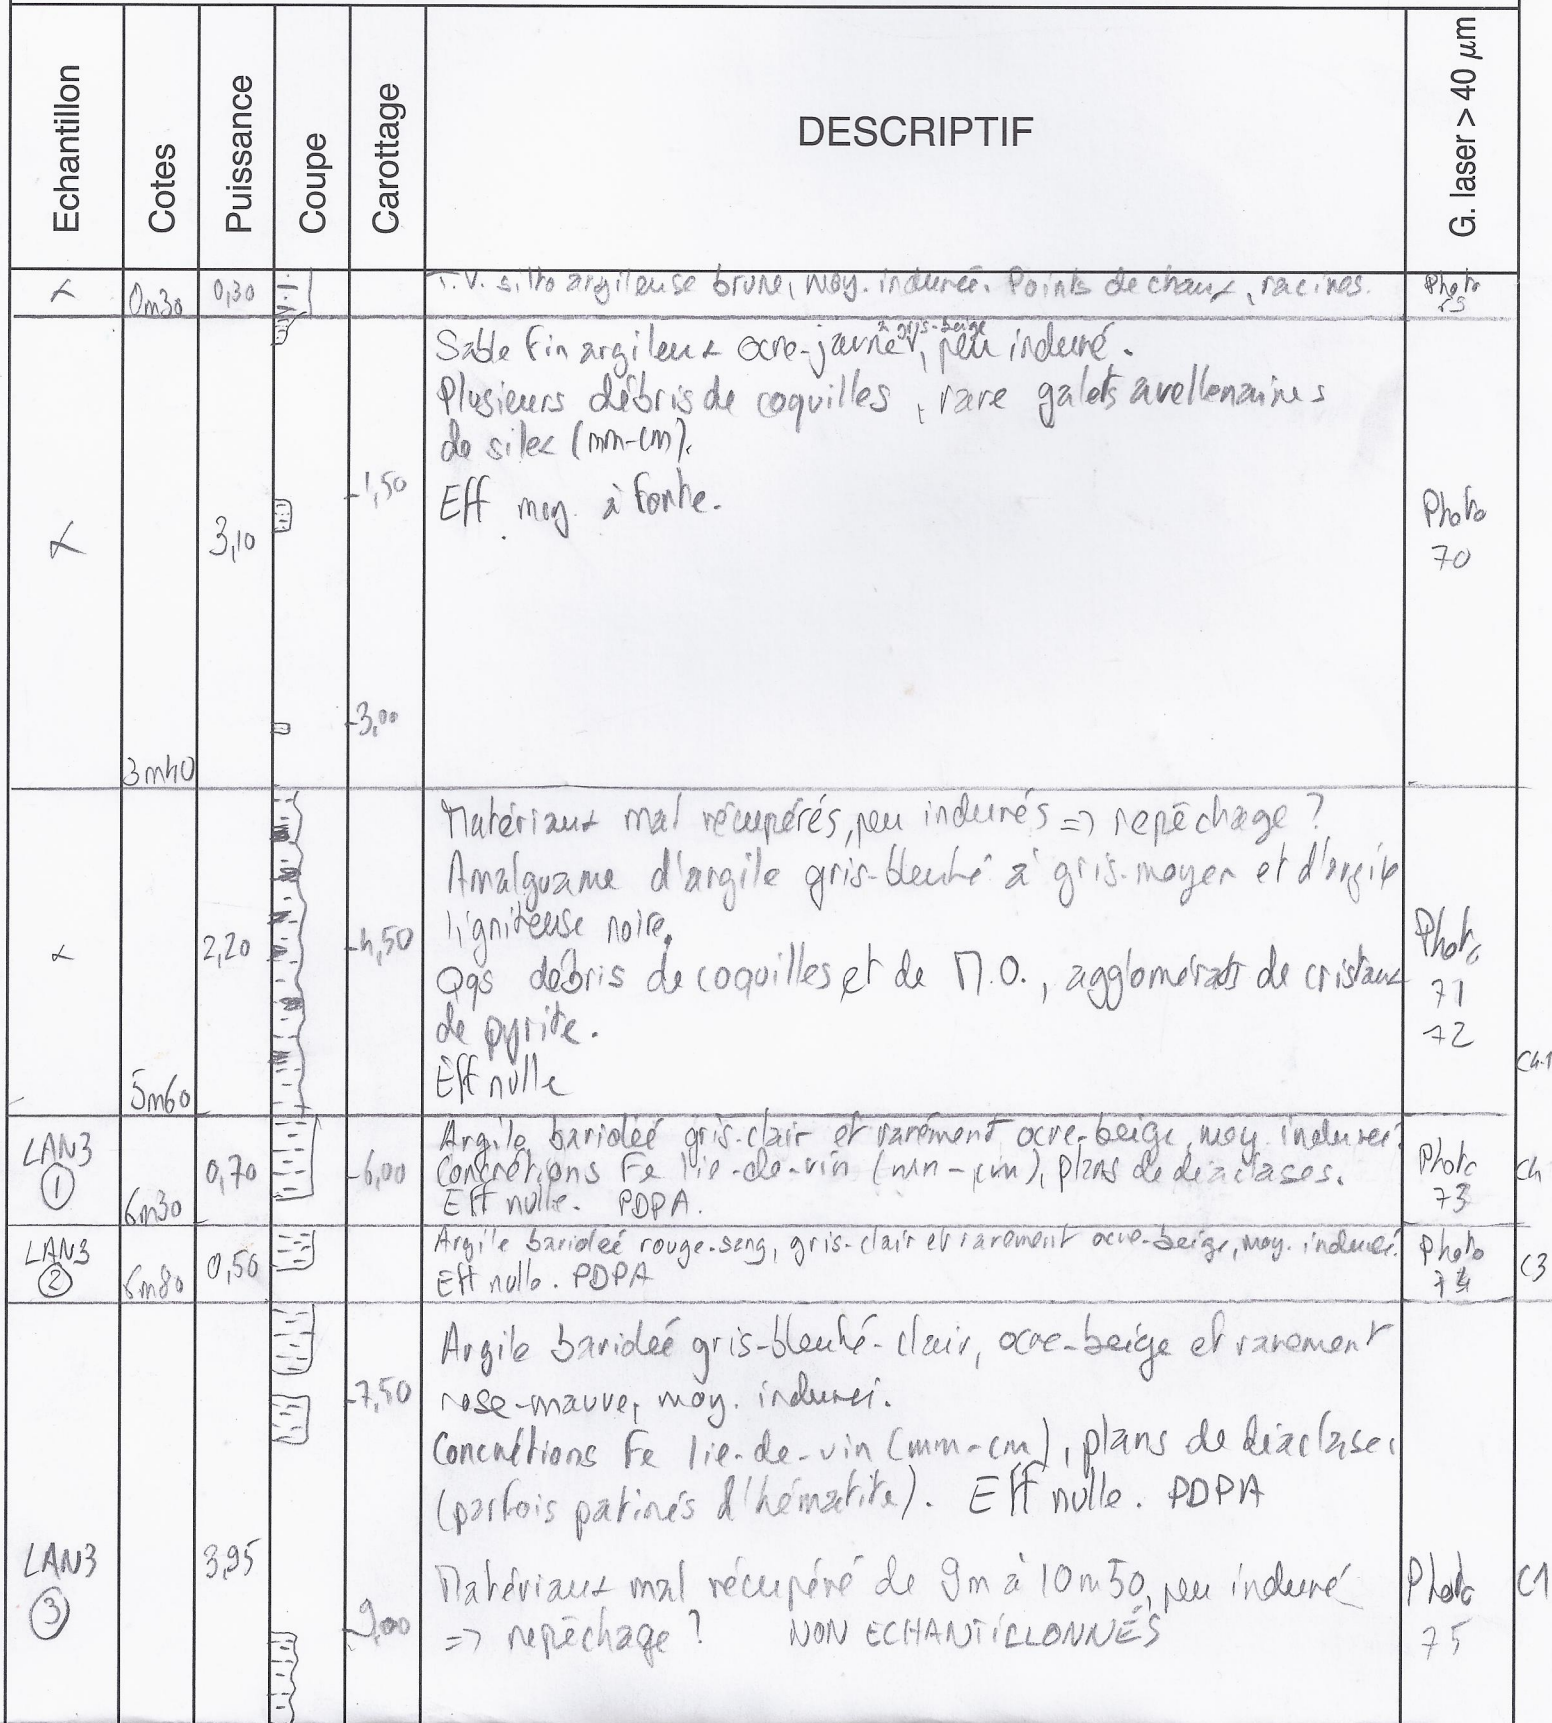 Echantillon
Cotes
Puissance
Coupe
Carottage
DESCRIPTIF
G. laser > 40 µm
x
0m30
0,30
T.V. silto argileuse brune, moy. indurée. Points de chaux, racines.
Photo
Sable fin argileux ocre-jaune à gris-beige, peu induré.
Plusieurs débris de coquilles, rare galets avellenaires
de silex (mm-cm).
Eff moy. à forte.
x
3m40
3,10
-1,50
-3,00
Photo
70
Matériaux mal récupérés, peu indurés => repêchage ?
Amalguame d'argile gris-bleuté à gris-moyen et d'argile
ligniteuse noire.
Qqs débris de coquilles et de M.O., agglomérats de cristaux
de pyrite.
Eff nulle
x
5m60
2,20
-4,50
Photo
71
72
C4-1
LAN3
1
6m30
0,70
-6,00
Argile bariolée gris-clair et rarement ocre-beige, moy. indurée.
Concrétions Fe lie-de-vin (mm-cm), plans de diaclases.
Eff nulle. PDPA.
Photo
73
C4
LAN3
2
6m80
0,50
Argile bariolée rouge-sang, gris-clair et rarement ocre-beige, moy. indurée.
Eff nulle. PDPA
Photo
74
C3
LAN3
3
3,95
-7,50
-9,00
Argile bariolée gris-bleuté-clair, ocre-beige et rarement
rose-mauve, moy. indurée.
Concrétions Fe lie-de-vin (mm-cm), plans de diaclases
(parfois patinés d'hématite). Eff nulle. PDPA
Matériaux mal récupéré de 9m à 10m50, peu induré
=> repêchage ? NON ECHANTILLONNÉS
Photo
75
C1